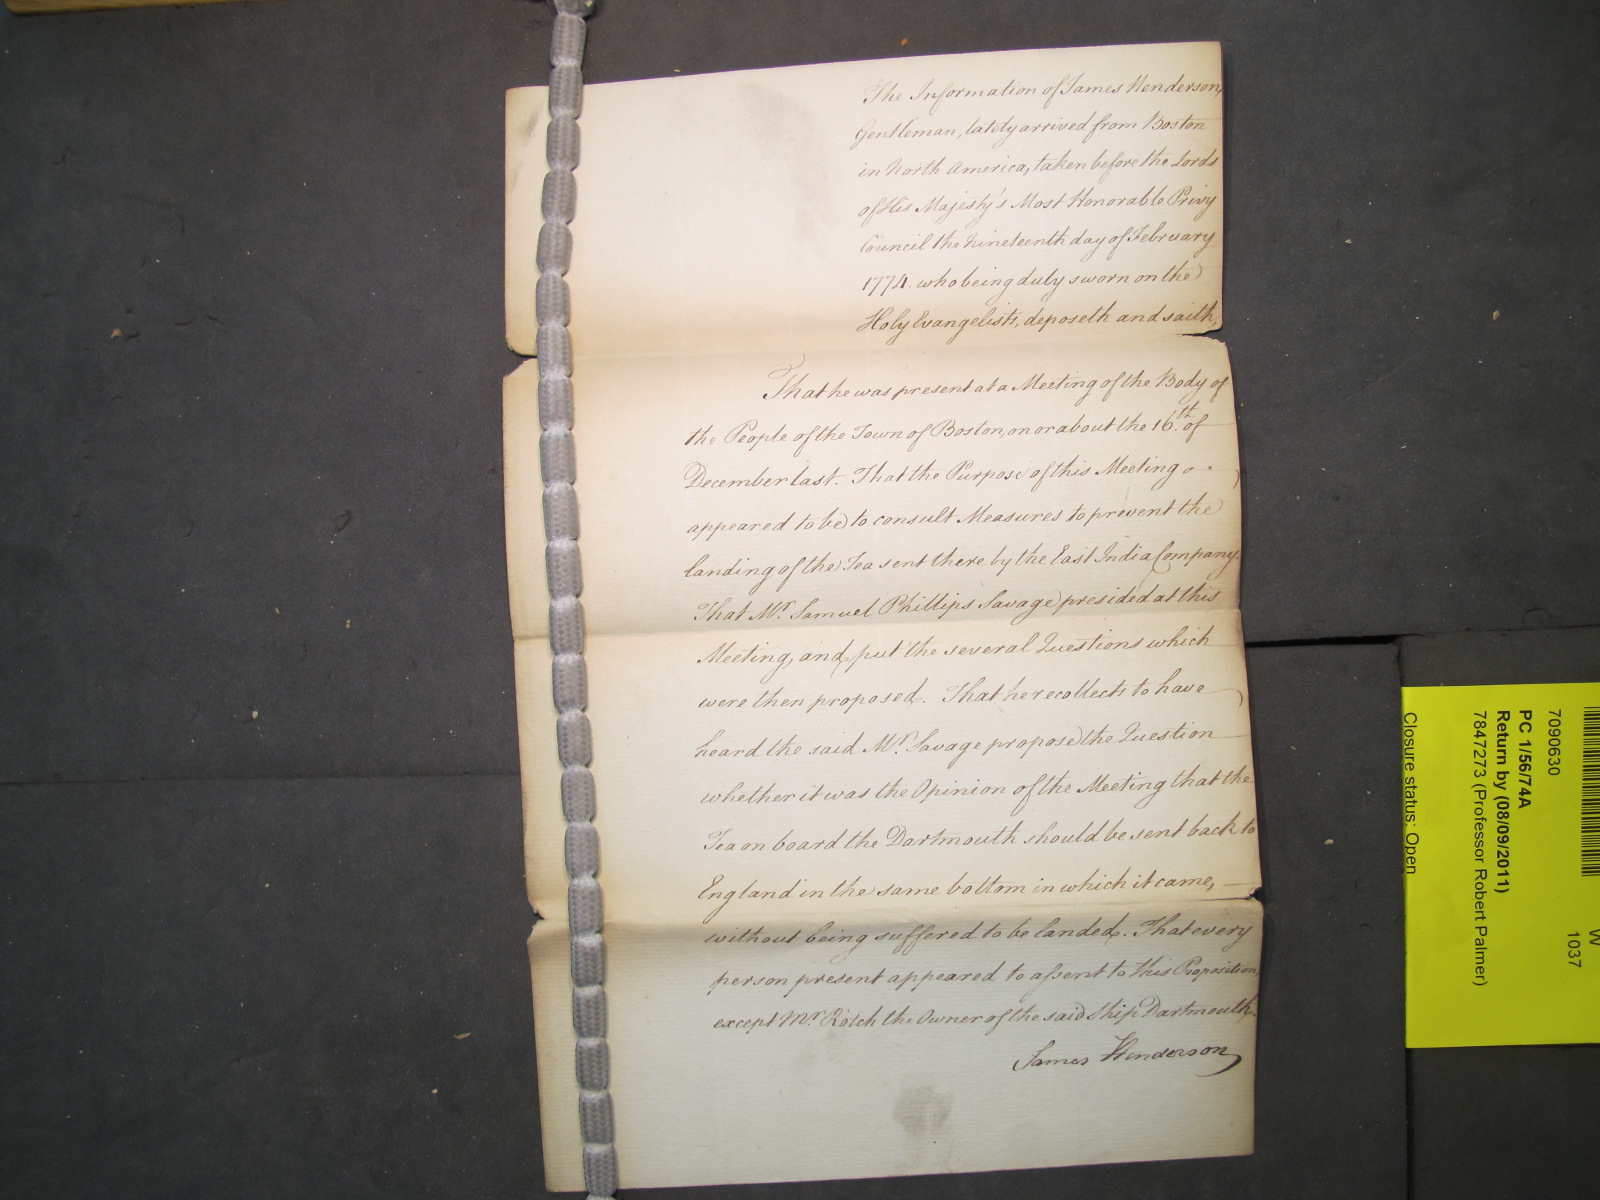 The Information of James Henderson,
Gentleman, lately arrived from Boston
in North America, taken before the Lords
of His Majesty's Most Honorable Privy
Council the Nineteenth day of February
1774. who being duly sworn on the
Holy Evangelists, deposeth and saith,
That he was present at a Meeting of the Body of
the People of the Town of Boston, on or about the 16.th of
December last. That the Purpose of this Meeting
appeared to be to consult Measures to prevent the
landing of the Tea sent there by the East India Company.
That Mr. Samuel Phillips Savage presided at this
Meeting, and put the several Questions which
were then proposed. That he recollects to have
heard the said Mr. Savage propose the Question
whether it was the Opinion of the Meeting that the
Tea on board the Dartmouth should be sent back to
England in the same bottom in which it came,
without being suffered to be landed. That every
person present appeared to assent to this Proposition,
except Mr. Rotch the Owner of the said Ship Dartmouth.
James Henderson
W
1037
7090630
PC 1/56/74A
Return by (08/09/2011)
7847273 (Professor Robert Palmer)
Closure status: Open